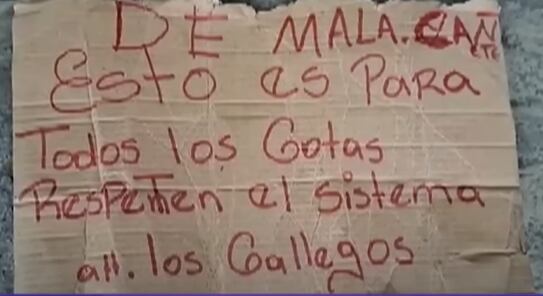 DE MALA.CAÑ
TE
Esto es Para
Todos los Gotas
Respeten el sistema
att. los Gallegos